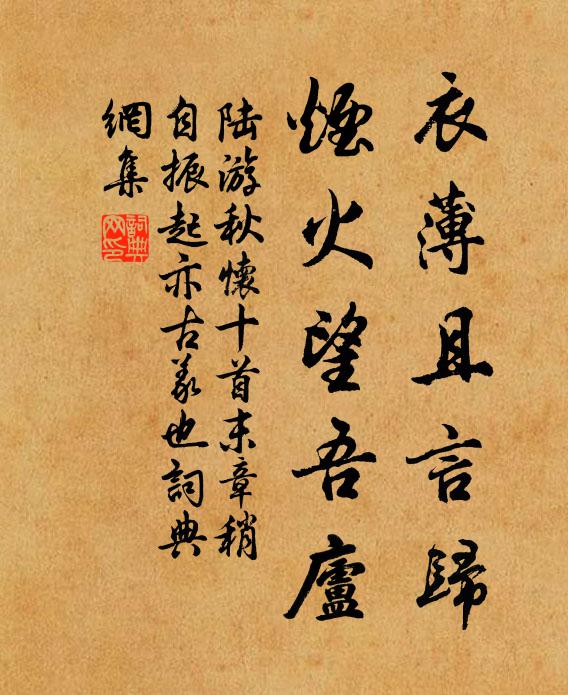 衣薄且言歸
煙火望吾廬
陆游秋懷十首末章稍
自振起亦古義也詞典
網集
詞典
网印